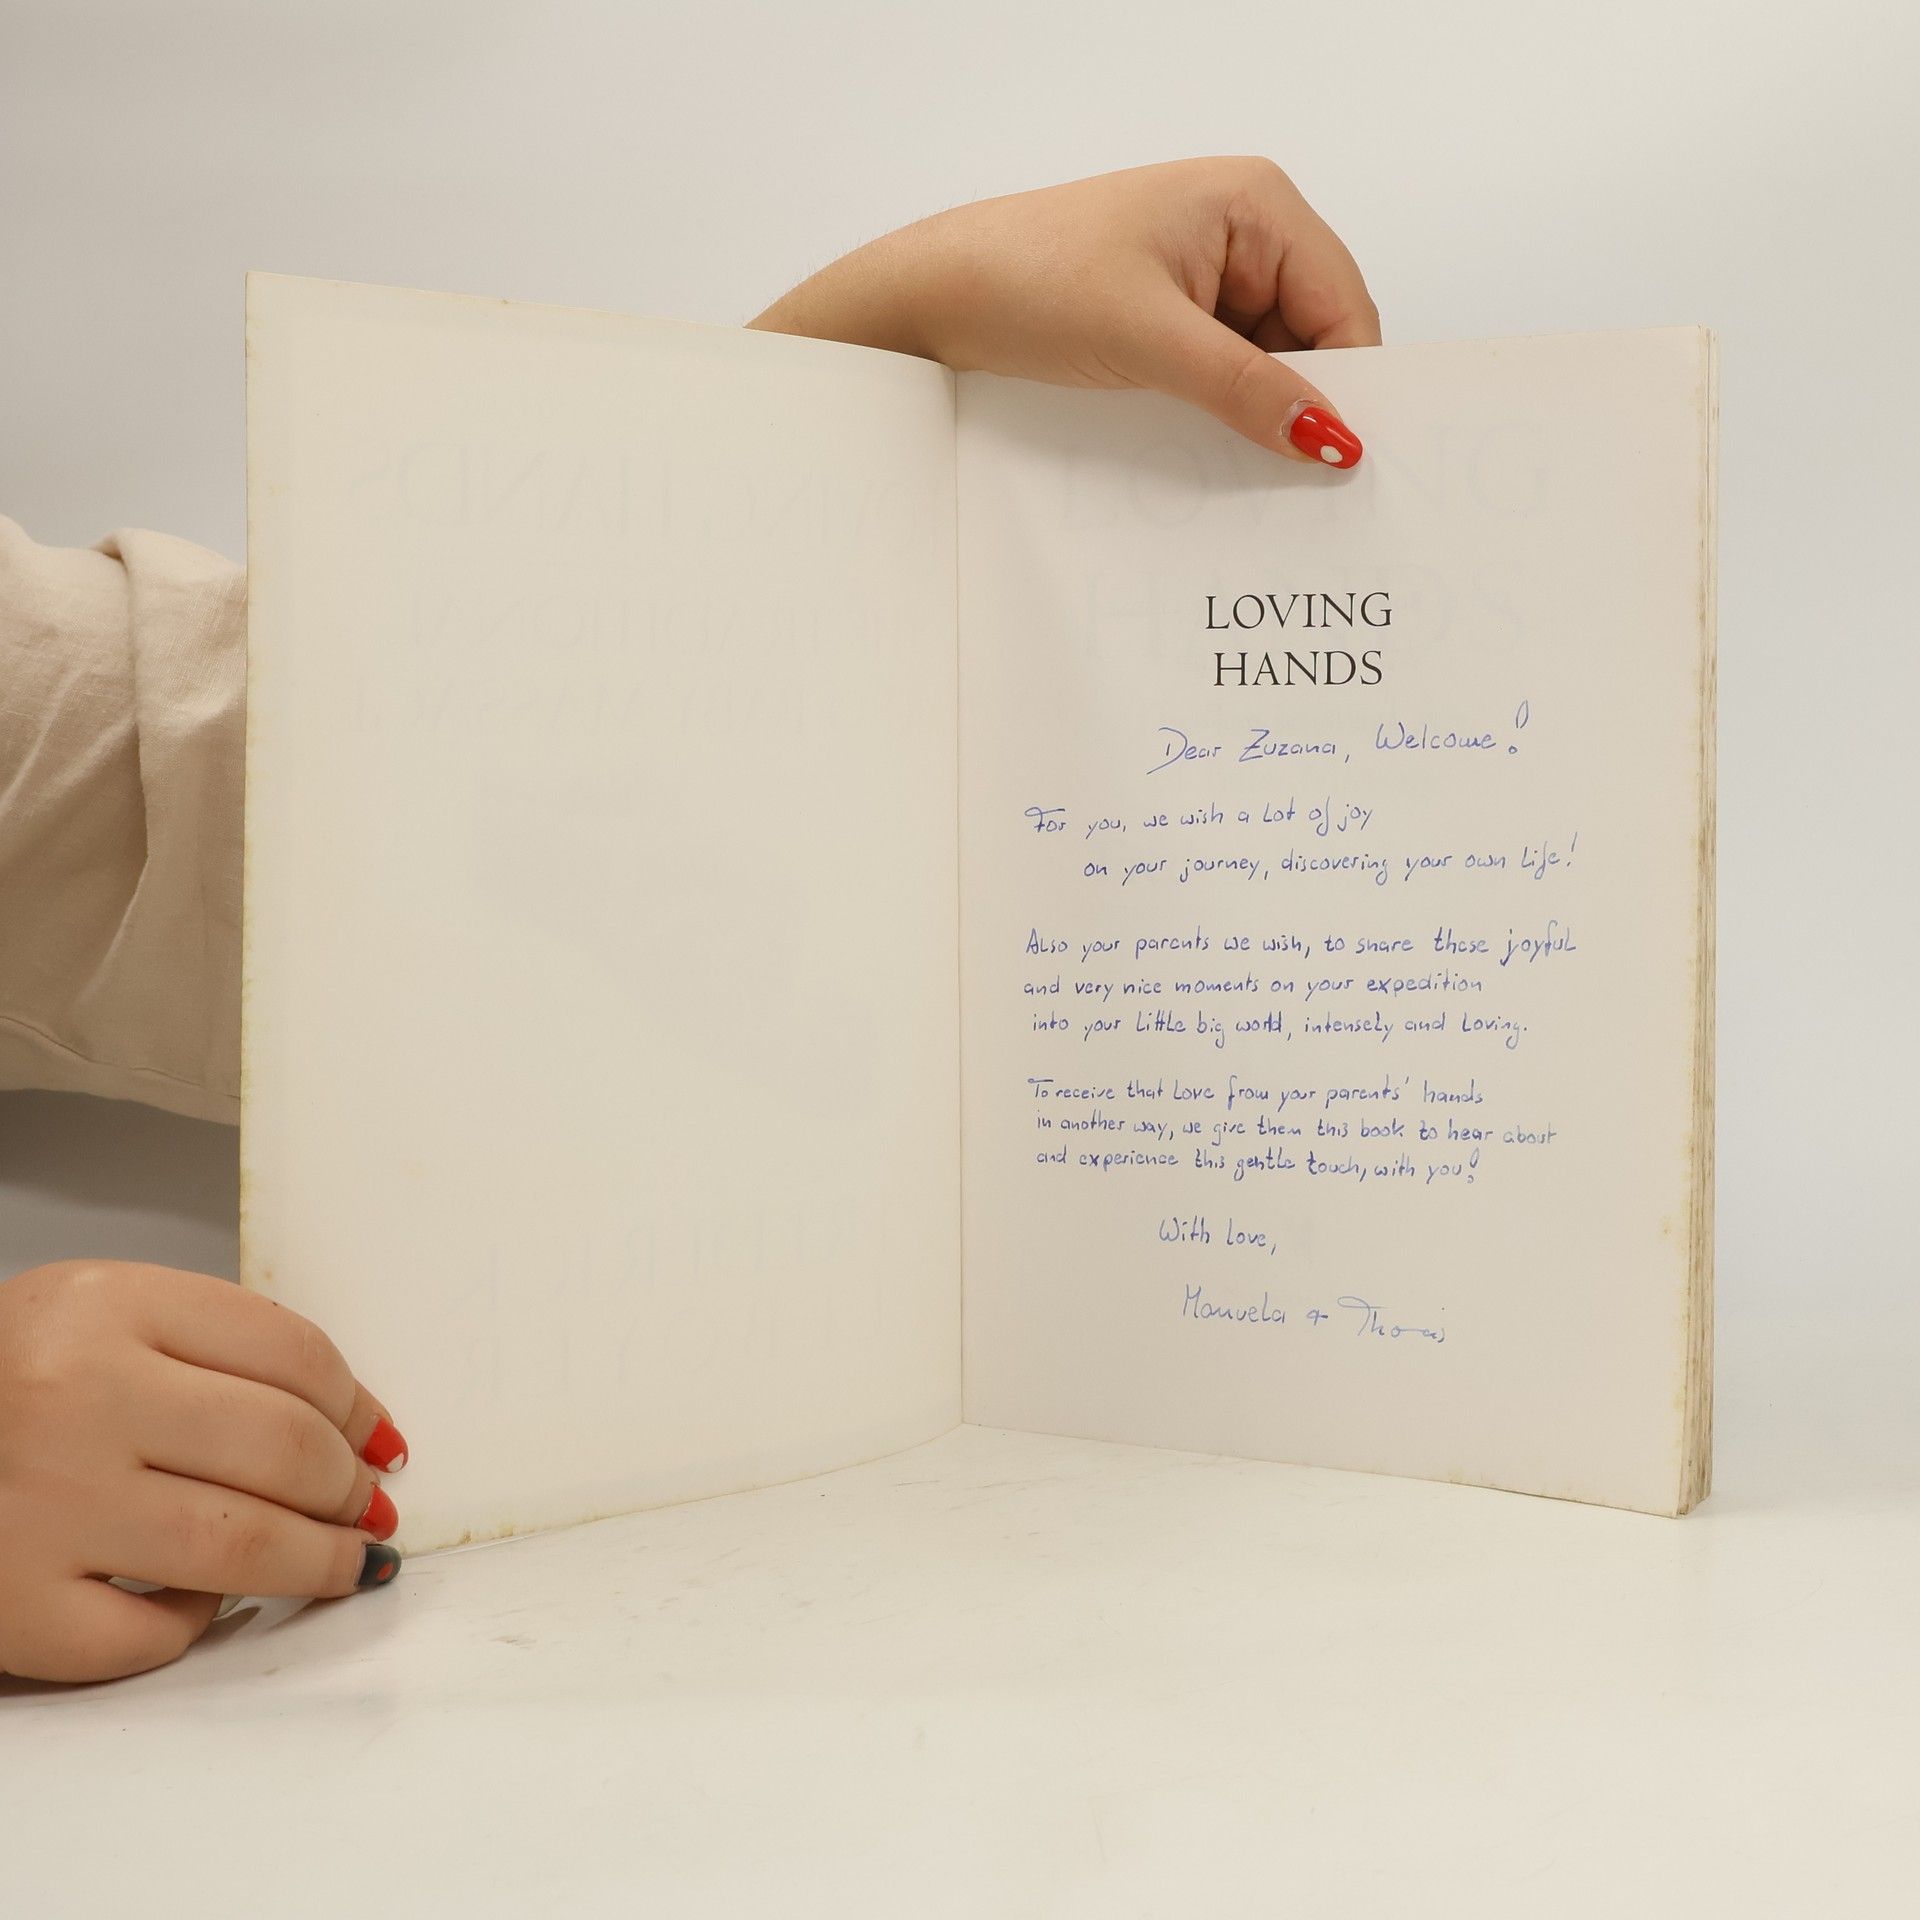 LOVING
HANDS
Dear Zuzana, Welcome!
For you, we wish a lot of joy
on your journey, discovering your own life!
Also your parents we wish, to share these joyful
and very nice moments on your expedition
into your little big world, intensely and loving.
To receive that love from your parents' hands
in another way, we give them this book to hear about
and experience this gentle touch, with you!
With love,
Manuela + Thomas